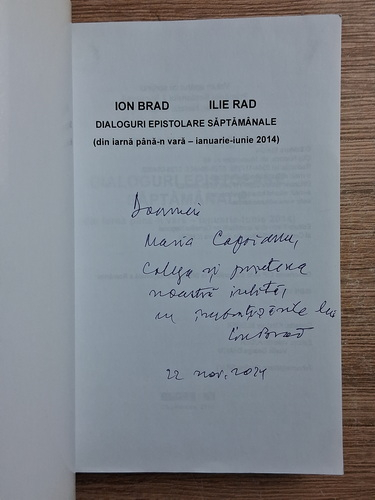 ION BRAD ILIE RAD
DIALOGURI EPISTOLARE SĂPTĂMÂNALE
(din iarnă până-n vară – ianuarie-iunie 2014)
Doamnei
Maria Capoianu,
colega și prietena
noastră iubită,
cu îmbrățișările lui
Ion Brad
22 nov. 2014